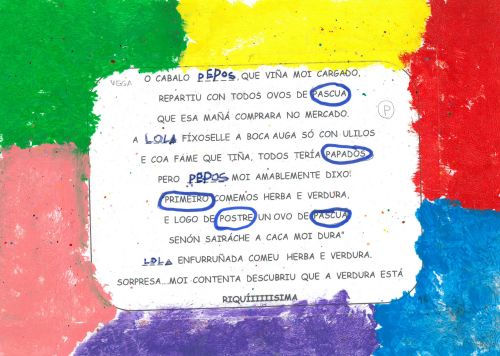 VEGA
O CABALO PEPOS, QUE VIÑA MOI CARGADO,
REPARTIU CON TODOS OVOS DE PASCUA
P
QUE ESA MAÑÁ COMPRARA NO MERCADO.
A LOLA FÍXOSELLE A BOCA AUGA SÓ CON ULILOS
E COA FAME QUE TIÑA, TODOS TERÍA PAPADOS.
PERO PEPOS MOI AMABLEMENTE DIXO:
PRIMEIRO COMEMOS HERBA E VERDURA,
E LOGO DE POSTRE UN OVO DE PASCUA
SENÓN SAIRÁCHE A CACA MOI DURA"
LOLA ENFURRUÑADA COMEU HERBA E VERDURA.
SORPRESA...MOI CONTENTA DESCUBRIU QUE A VERDURA ESTÁ
RIQUÍIIIIISIMA